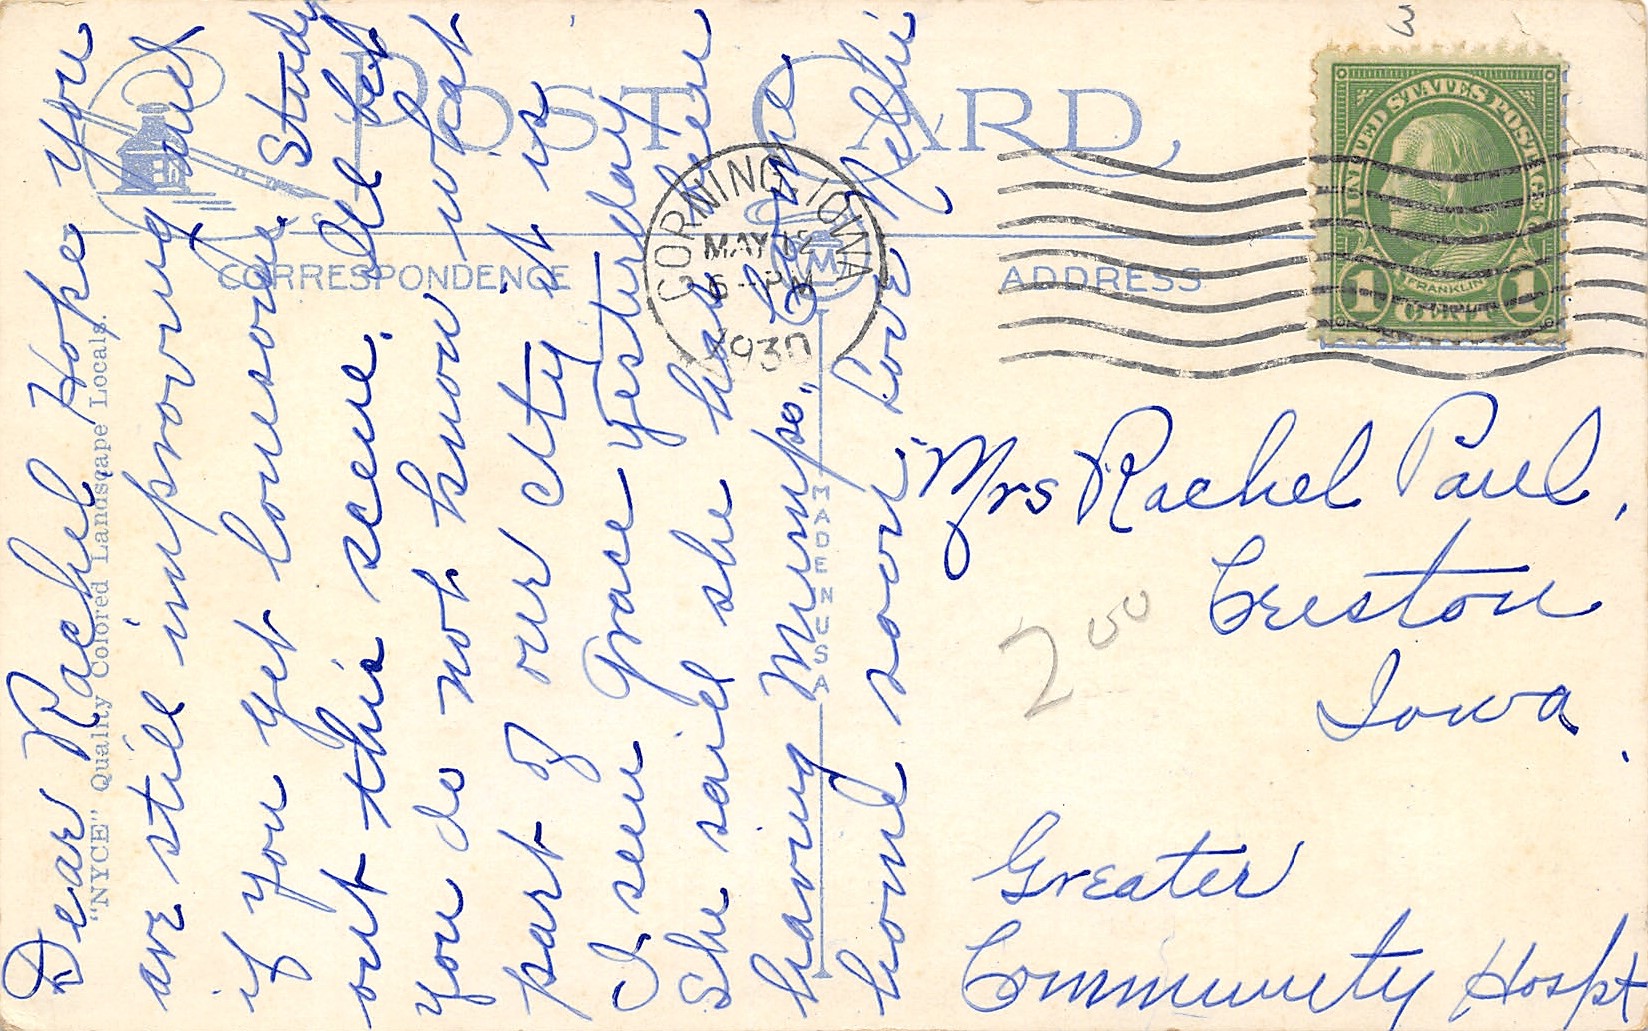 POST CARD,
CORRESPONDENCE
ADDRESS
"NYCE" Quality Colored Landscape Locals.
MADE IN USA
M
CORNING IOWA
MAY 12
6-PM
1930
UNITED STATES POSTAGE
1 FRANKLIN 1
CENT
Dear Rachel Hope you
are still improving and
if you get lonesome Study
out this scene. Ill bet
you do not know what
part of our city it is
I seen Grace yesterday
She said she has been
having Mumps. Come
home soon Love Nellie
Mrs Rachel Paul,
Creston
Iowa.
Greater
Community Hospt
2 00
3